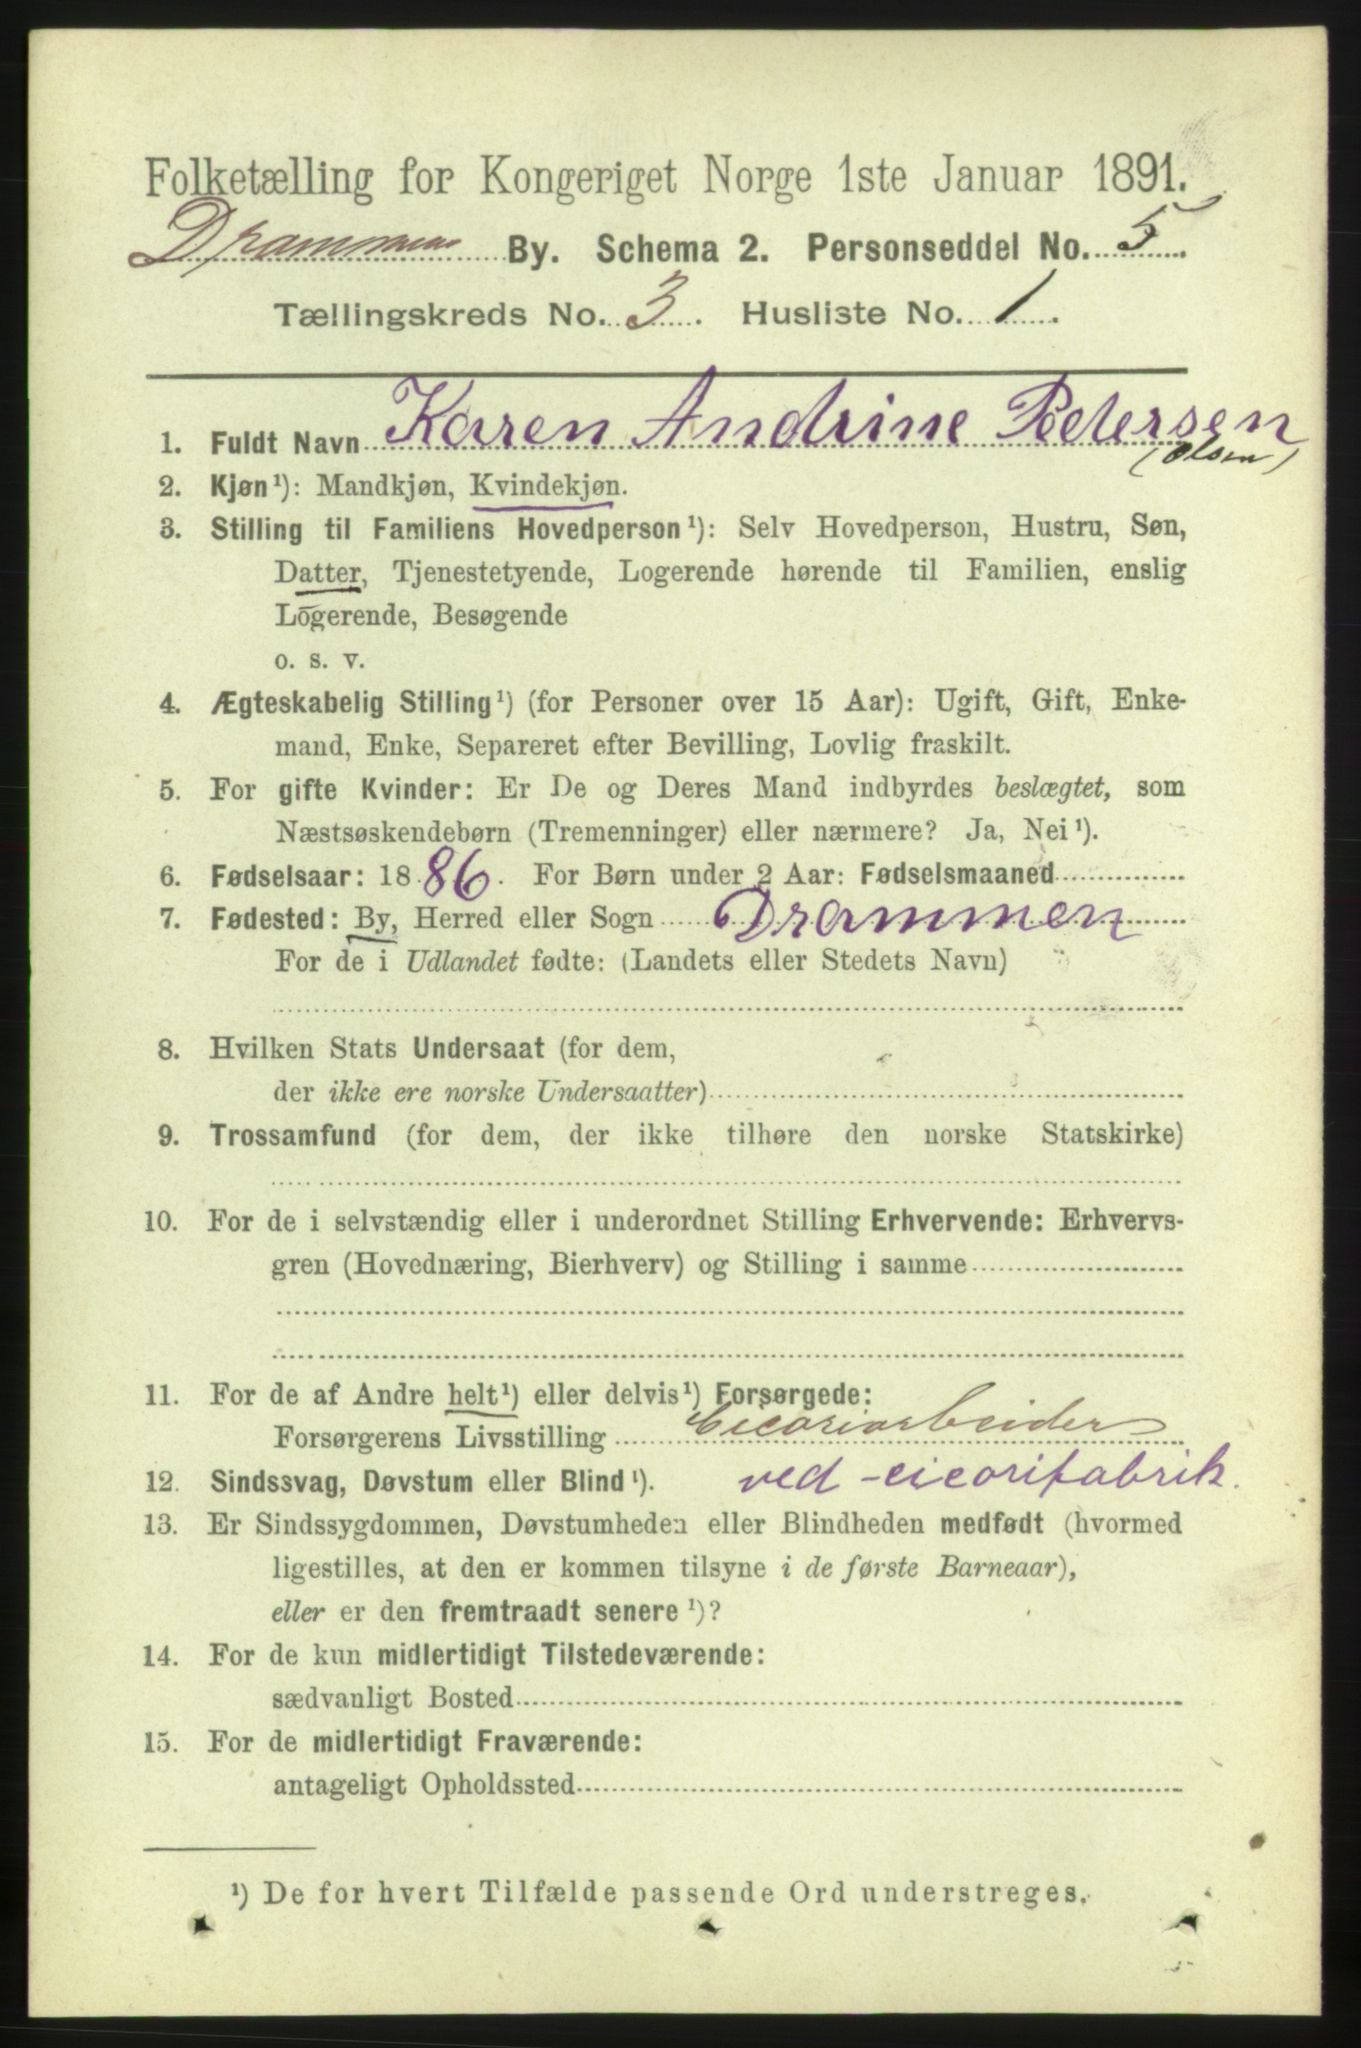 Folketælling for Kongeriget Norge 1ste Januar 1891.
Drammens By. Schema 2. Personseddel No. 5.
Tællingskreds No. 3. Husliste No. 1.
1. Fuldt Navn Karen Andrine Petersen
(Olsen)
2. Kjøn¹): Mandkjøn, Kvindekjøn.
3. Stilling til Familiens Hovedperson¹): Selv Hovedperson, Hustru, Søn,
Datter, Tjenestetyende, Logerende hørende til Familien, enslig
Logerende, Besøgende
o. s. v.
4. Ægteskabelig Stilling¹) (for Personer over 15 Aar): Ugift, Gift, Enke-
mand, Enke, Separeret efter Bevilling, Lovlig fraskilt.
5. For gifte Kvinder: Er De og Deres Mand indbyrdes beslægtet, som
Næstsøskendebørn (Tremenninger) eller nærmere? Ja, Nei¹).
6. Fødselsaar: 1886. For Børn under 2 Aar: Fødselsmaaned
7. Fødested: By, Herred eller Sogn Drammen
For de i Udlandet fødte: (Landets eller Stedets Navn)
8. Hvilken Stats Undersaat (for dem,
der ikke ere norske Undersaatter)
9. Trossamfund (for dem, der ikke tilhøre den norske Statskirke)
10. For de i selvstændig eller i underordnet Stilling Erhvervende: Erhvervs-
gren (Hovednæring, Bierhverv) og Stilling i samme
11. For de af Andre helt¹) eller delvis¹) Forsørgede:
Forsørgerens Livsstilling Cicoriarbeider
12. Sindssvag, Døvstum eller Blind¹). ved cicorifabrik.
13. Er Sindssygdommen, Døvstumheden eller Blindheden medfødt (hvormed
ligestilles, at den er kommen tilsyne i de første Barneaar),
eller er den fremtraadt senere¹)?
14. For de kun midlertidigt Tilstedeværende:
sædvanligt Bosted
15. For de midlertidigt Fraværende:
antageligt Opholdssted
¹) De for hvert Tilfælde passende Ord understreges.